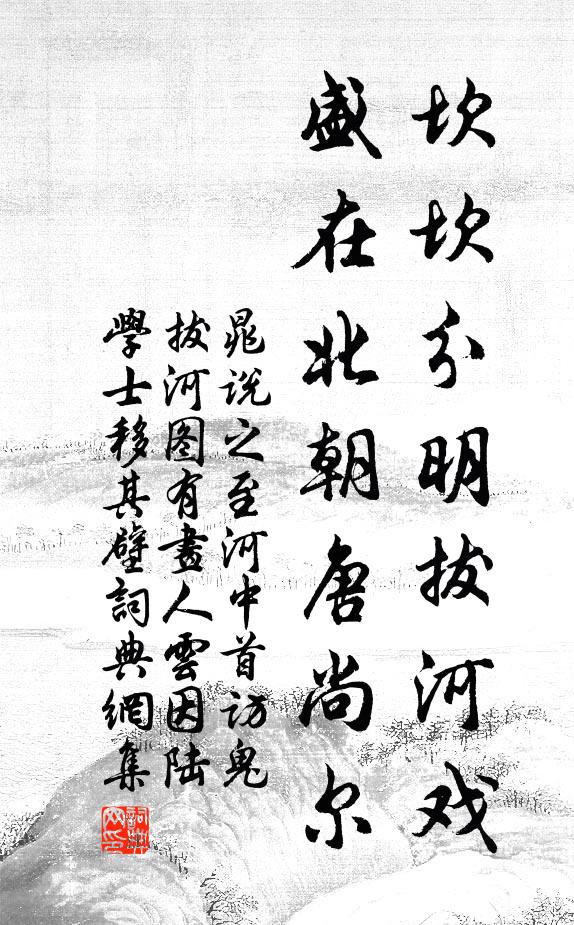 坎坎分明拔河戏
盛在北朝唐尚尔
晁说之至河中首访鬼
拔河图有畫人雲因陆
學士移其壁詞典網集
詞典网印